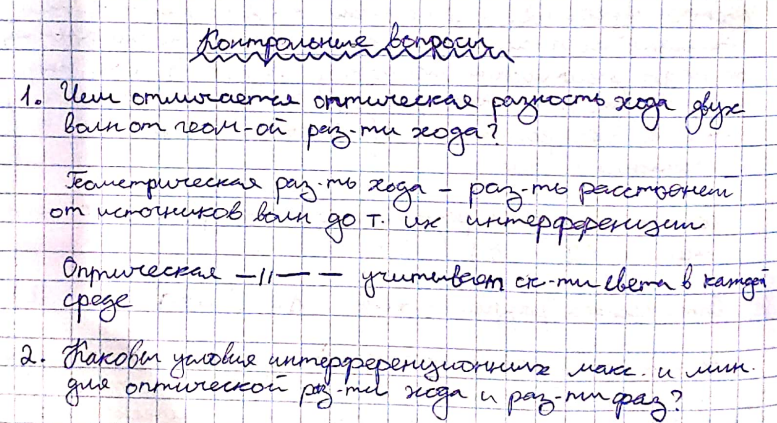 Контрольные вопросы
1. Чем отличается оптическая разность хода двух
волн от геом-ой раз-ти хода?
Геометрическая раз-ть хода – раз-ть расстояний
от источников волн до т. их интерференции
Оптическая —//— — учитывает ск-ти света в каждой
среде
2. Каковы условия интерференционных макс. и мин.
для оптической раз-ти хода и раз-ти фаз?